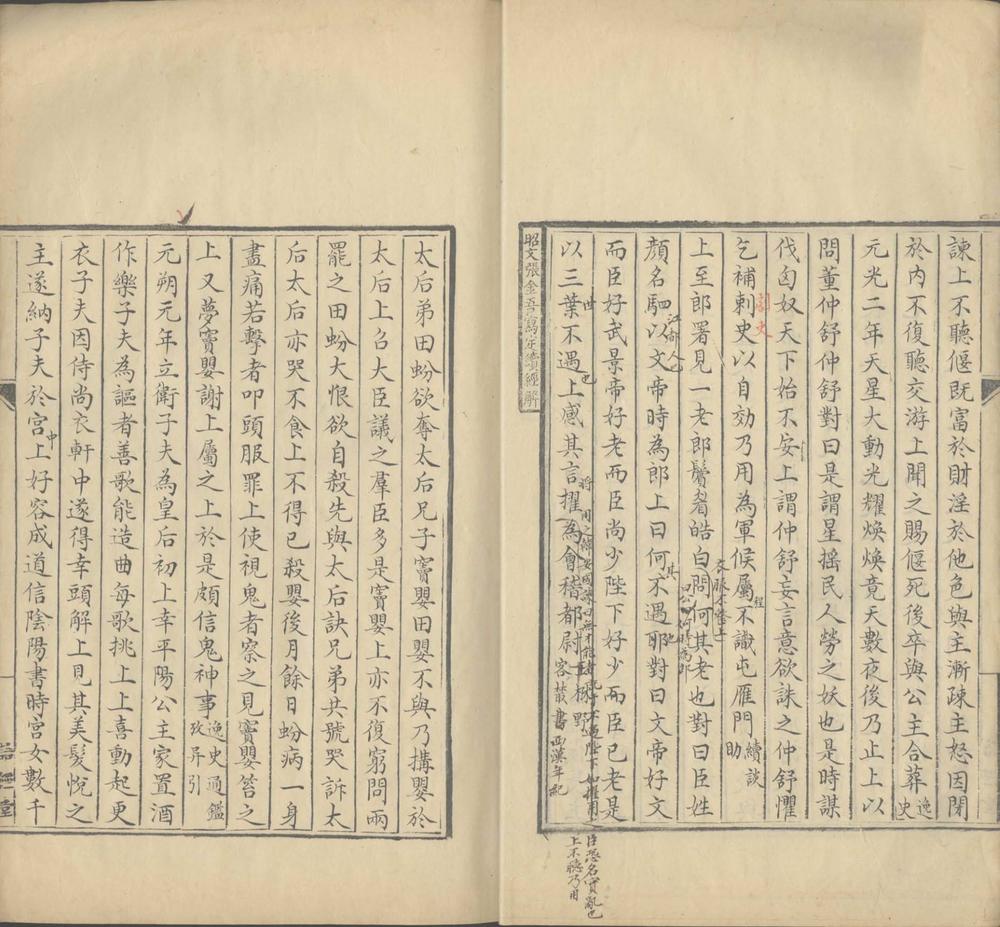 諫上不聽偃既富於財淫於他色與主漸疎主怒因閉
於内不復聽交游上聞之賜偃死後卒與公主合葬逸史
元光二年天星大動光耀煥煥竟天數夜後乃止上以
問董仲舒仲舒對曰是謂星摇民人勞之妖也是時謀
伐匈奴天下始不安上謂仲舒妄言意欲誅之仲舒懼
乞補刺史以自効乃用為軍候屬不識屯雁門續談助
程
上至郎署見一老郎鬢眉皓白問何其老也對曰臣姓
衣服不整上
顔名駟以文帝時為郎上曰何不遇耶對曰文帝好文
江都人也
其
也
而臣好武景帝好老而臣尚少陛下好少而臣已老是
以三葉不遇上感其言擢為會稽都尉
世
也
野客叢書
西漢年紀
臣恐名實亂也
上不聽乃用
昭文張金吾寫定續經解
太后弟田蚡欲奪太后兄子竇嬰田嬰不與乃搆嬰於
太后上召大臣議之羣臣多是竇嬰上亦不復窮問兩
罷之田蚡大恨欲自殺先與太后訣兄弟共號哭訴太
后太后亦哭不食上不得已殺嬰後月餘日蚡病一身
盡痛若擊者叩頭服罪上使視鬼者察之見竇嬰笞之
上又夢竇嬰謝上屬之上於是頗信鬼神事逸史通鑑攷异引
元朔元年立衛子夫為皇后初上幸平陽公主家置酒
作樂子夫為謳者善歌能造曲每歌挑上上喜動起更
衣子夫因侍尚衣軒中遂得幸頭解上見其美髮悅之
主遂納子夫於宮上好容成道信陰陽書時宮女數千
中